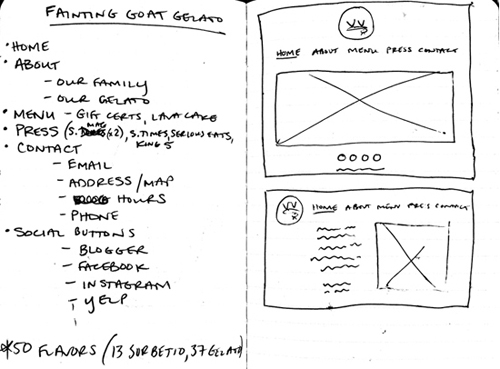 FAINTING GOAT GELATO
• HOME
• ABOUT
- OUR FAMILY
- OUR GELATO
• MENU - GIFT CERTS, LAVA CAKE
• PRESS (S. MAG (x2), S. TIMES, SERIOUS EATS,
KING 5
• CONTACT
- EMAIL
- ADDRESS/MAP
- HOURS
- PHONE
• SOCIAL BUTTONS
- BLOGGER
- FACEBOOK
- INSTAGRAM
- YELP
*50 FLAVORS (13 SORBETTO, 37 GELATO)
HOME ABOUT MENU PRESS CONTACT
HOME ABOUT MENU PRESS CONTACT